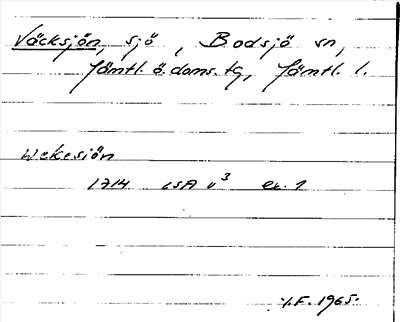 Väcksjön, sjö, Bodsjö sn,
Jämtl. ö. doms. tg, Jämtl. l.
Wekesiön
1714 LSA v³ ex. 1
F. 1965.